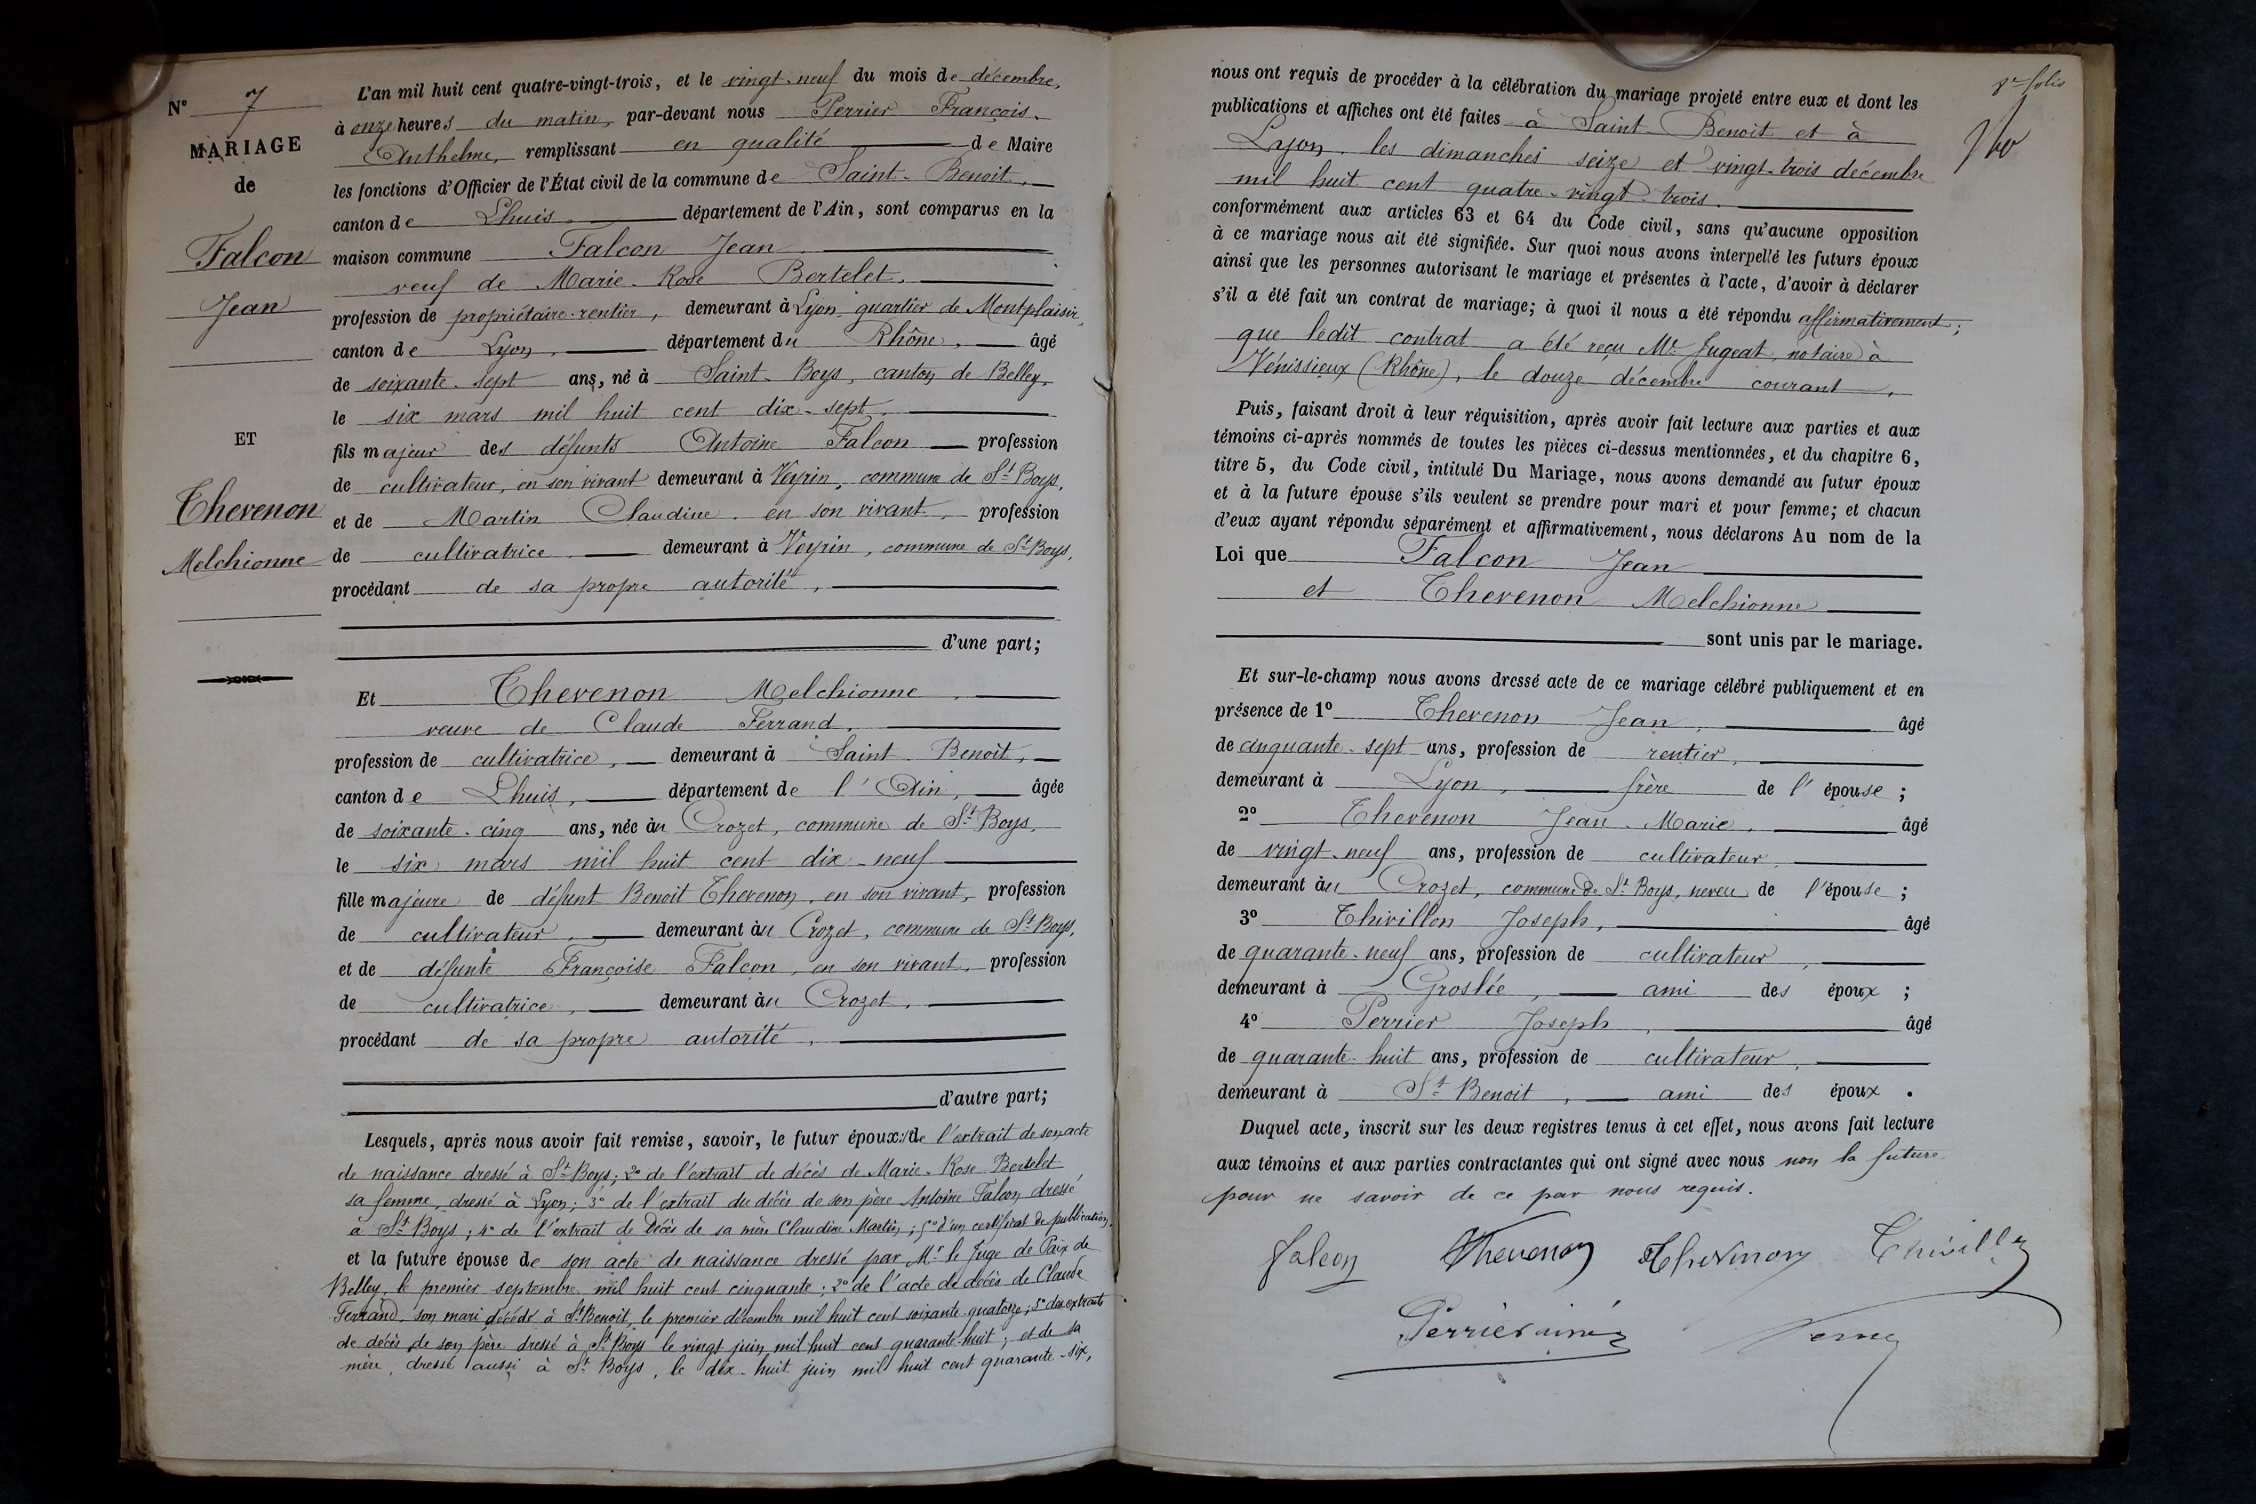 N° 7
MARIAGE
de
Falcon
Jean
ET
Thevenon
Melchionne
L'an mil huit cent quatre-vingt-trois, et le vingt-neuf du mois de décembre,
à onze heures du matin, par-devant nous Perrier François-
Anthelme, remplissant en qualité de Maire
les fonctions d'Officier de l'État civil de la commune de Saint-Benoit,
canton de Lhuis, département de l'Ain, sont comparus en la
maison commune Falcon Jean
veuf de Marie-Rose Bertelet,
profession de propriétaire-rentier, demeurant à Lyon, quartier de Montplaisir,
canton de Lyon, département du Rhône, âgé
de soixante-sept ans, né à Saint-Boys, canton de Belley,
le six mars mil huit cent dix-sept,
fils majeur des défunts Antoine Falcon profession
de cultivateur, en son vivant demeurant à Veyrin, commune de St Boys,
et de Martin Claudine, en son vivant, profession
de cultivatrice, demeurant à Veyrin, commune de St Boys,
procédant de sa propre autorité,
d'une part;
Et Thevenon Melchionne,
veuve de Claude Ferrand,
profession de cultivatrice, demeurant à Saint-Benoit,
canton de Lhuis, département de l'Ain, âgée
de soixante-cinq ans, née au Crozet, commune de St Boys,
le six mars mil huit cent dix-neuf
fille majeure de défunt Benoit Thevenon, en son vivant, profession
de cultivateur, demeurant au Crozet, commune de St Boys,
et de défunte Françoise Falcon, en son vivant, profession
de cultivatrice, demeurant au Crozet,
procédant de sa propre autorité,
d'autre part;
Lesquels, après nous avoir fait remise, savoir, le futur époux: de l'extrait de son acte
de naissance dressé à St Boys; 2° de l'extrait de décès de Marie-Rose Bertelet
sa femme, dressé à Lyon; 3° de l'extrait du décès de son père Antoine Falcon dressé
à St Boys; 4° de l'extrait de décès de sa mère Claudine Martin; 5° d'un certificat de publication,
et la future épouse de son acte de naissance dressé par Mr le Juge de Paix de
Belley, le premier septembre mil huit cent cinquante; 2° de l'acte de décès de Claude
Ferrand, son mari décédé à St Benoit, le premier décembre mil huit cent soixante-quatorze; 3° des extraits
de décès de son père dressé à St Boys le vingt juin mil huit cent quarante-huit; et de sa
mère, dressé aussi à St Boys, le dix-huit juin mil huit cent quarante-six,
nous ont requis de procéder à la célébration du mariage projeté entre eux et dont les
publications et affiches ont été faites à Saint-Benoit et à
Lyon, les dimanches seize et vingt-trois décembre
mil huit cent quatre-vingt-trois.
conformément aux articles 63 et 64 du Code civil, sans qu'aucune opposition
à ce mariage nous ait été signifiée. Sur quoi nous avons interpellé les futurs époux
ainsi que les personnes autorisant le mariage et présentes à l'acte, d'avoir à déclarer
s'il a été fait un contrat de mariage; à quoi il nous a été répondu affirmativement;
que ledit contrat a été reçu Me Jugeat, notaire à
Vénissieux (Rhône), le douze décembre courant,
Puis, faisant droit à leur réquisition, après avoir fait lecture aux parties et aux
témoins ci-après nommés de toutes les pièces ci-dessus mentionnées, et du chapitre 6,
titre 5, du Code civil, intitulé Du Mariage, nous avons demandé au futur époux
et à la future épouse s'ils veulent se prendre pour mari et pour femme; et chacun
d'eux ayant répondu séparément et affirmativement, nous déclarons Au nom de la
Loi que Falcon Jean
et Thevenon Melchionne
sont unis par le mariage.
Et sur-le-champ nous avons dressé acte de ce mariage célébré publiquement et en
présence de 1° Thevenon Jean, âgé
de cinquante-sept ans, profession de rentier,
demeurant à Lyon, frère de l'épouse;
2° Thevenon Jean-Marie, âgé
de vingt-neuf ans, profession de cultivateur,
demeurant au Crozet, commune de St Boys, neveu de l'épouse;
3° Thivillon Joseph, âgé
de quarante-neuf ans, profession de cultivateur,
demeurant à Groslée, ami des époux;
4° Perrier Joseph, âgé
de quarante-huit ans, profession de cultivateur,
demeurant à St Benoit, ami des époux.
Duquel acte, inscrit sur les deux registres tenus à cet effet, nous avons fait lecture
aux témoins et aux parties contractantes qui ont signé avec nous non la future
pour ne savoir de ce par nous requis.
falcon Thevenon Thevenon Thivillon
Perrier aîné